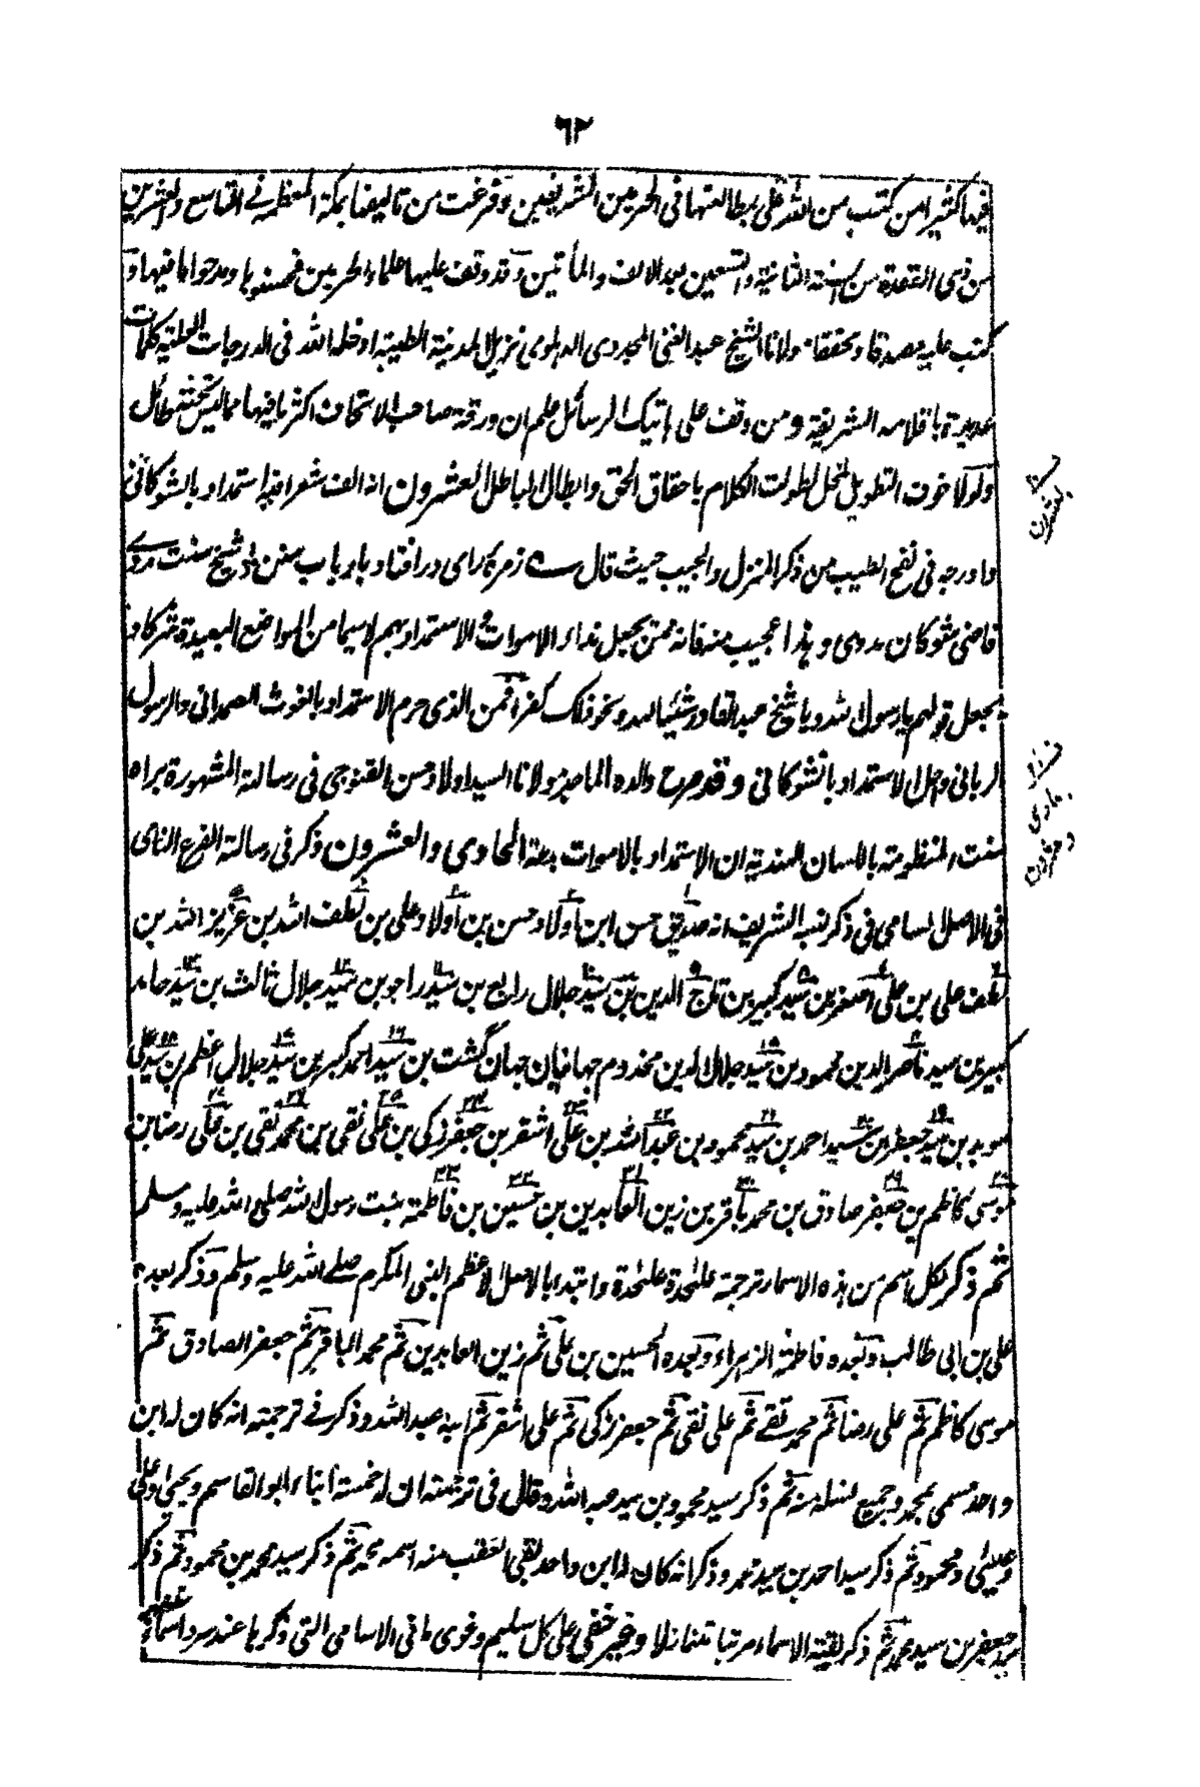 ٦٢
فيها كثيرا من كتب من الله على بمطالعتها فى الحرمين الشريفين وفرغت من تاليفها بمكة المعظمة فے التاسع والعشرين
من ذى القعدة من السنة الثانية والتسعين بعد الالف والمأتين وقد وقف عليها علماء الحرمين فحسنوها ومدحوا ما فيها و
كتب عليه مصدقا ومحققا مولانا الشيخ عبد الغنى المجددى الدهلوى نزيل المدينة الطيبة ادخله الله فى الدرجات العلية كلمات
عديدة باقلامه الشريفة ومن وقف على هاتيك الرسائل علم ان ورقة صاحب الاتحاف اكثر ما فيها مما ليس تحته طائل
ولولا خوف التطويل المخل لطولت الكلام باحقاق الحق وابطال الباطل العشرون انه الف شعرا فيه استمداد بالشوكانى
وادرجه فى نفح الطيب من ذكر المنزل والحبيب حيث قال ے زمرۂ راى در افتاد بارباب سنن شيخ سنت مددے
قاضى شوكان مددى وهذا عجيب منه فانه ممن يجعل نداء الاموات والاستمداد بهم لاسيما من المواضع البعيدة شركا و
يجعل قولهم يا رسول الله ويا شيخ عبد القادر شيئا لله ونحو ذلك كفرا فمن الذى حرم الاستمداد بالغوث الصمدانى والرسول
الربانى واحل الاستمداد بالشوكانى وقد صرح والده الماجد مولانا السيد اولاد حسن القنوجى فى رسالته المشهورة براه
سنت المنظومة باللسان الهندية ان الاستمداد بالاموات بدعة الحادى والعشرون ذكر فى رسالته الفرع النامى
فى الاصل السامى فى ذكر نسبه الشريف انه صديق حسن ابن اولاد حسن بن اولاد على بن لطف الله بن عزيز الله بن
لطف على بن على اصغر بن سيد كبير بن تاج الدين بن سيد جلال رابع بن سيد راجو بن سيد جلال ثالث بن سيد حامد
كبير بن سيد ناصر الدين محمود بن سيد جلال الدين مخدوم جهانيان جهان گشت بن سيد احمد كبير بن سيد جلال اعظم بن سيد على
مويد بن سيد جعفر بن سيد احمد بن سيد محمود بن عبد الله بن على اشقر بن جعفر زكى بن على نقى بن محمد تقى بن على رضا بن
موسى كاظم بن جعفر صادق بن محمد باقر بن زين العابدين بن حسين بن فاطمة بنت رسول الله صلى الله عليه وسلم
ثم ذكر لكل اسم من هذه الاسماء ترجمة علىٰحدة علىٰحدة وابتدا بالاصل الاعظم النبى المكرم صلے الله عليه وسلم وذكر بعده
على بن ابى طالب وبعده فاطمة الزهراء وبعده الحسين بن على ثم زين العابدين ثم محمد الباقر ثم جعفر الصادق ثم
موسى كاظم ثم على رضا ثم محمد تقے ثم على نقى ثم جعفر زكى ثم على اشقر ثم ابنه عبد الله وذكر فے ترجمته انه كان له ابن
واحد مسمى بمحمد وجميع نسله منه ثم ذكر سيد محمود بن سيد عبد الله وقال فى ترجمته ان له خمسة ابناء ابو القاسم ويحيى وعلى
وعيسى ومحمود ثم ذكر سيد احمد بن سيد محمد وذكر انه كان له ابن واحد بقى العقب منه اسمه محمد ثم ذكر سيد محمد بن محمود ثم ذكر
سيد جعفر بن سيد محمد ثم ذكر بقية الاسماء مرتبا متنازلا وغير خفى على كل سليم وغوى ما فى الاسامى التى ذكرها عند سرد اسماء
العشرون
الحادى
والعشرون